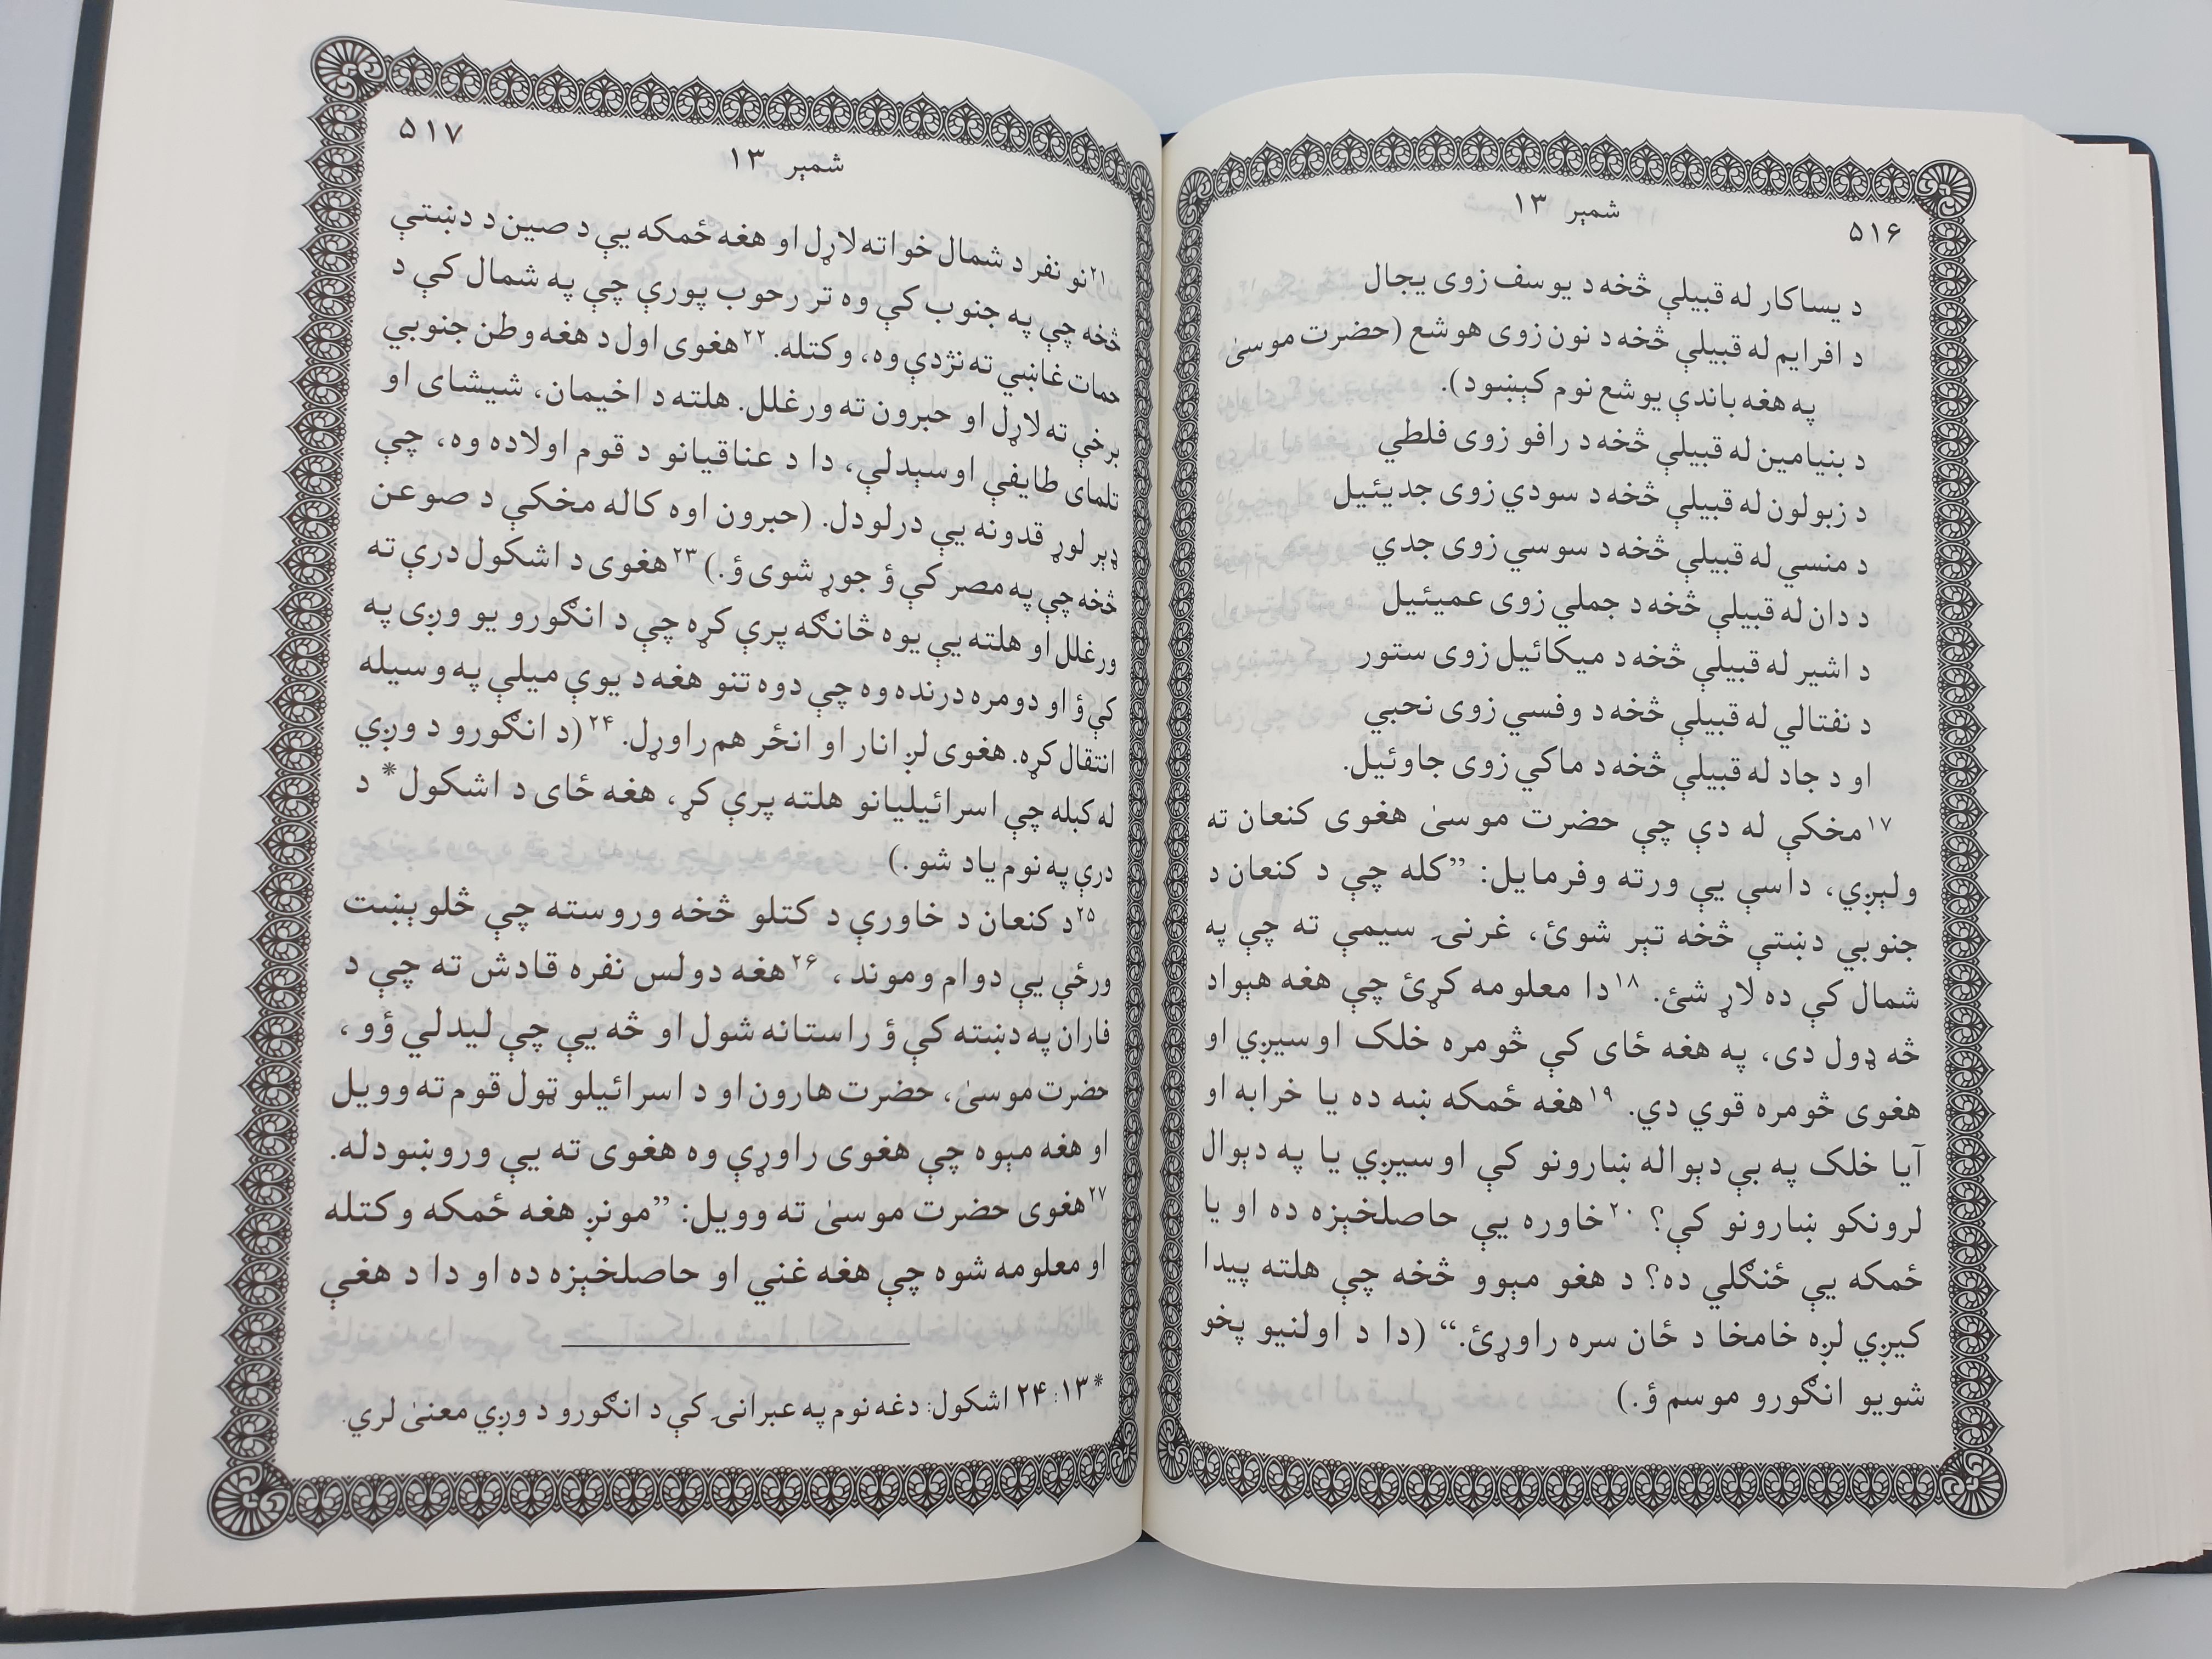 ۵۱۶
شمېر ۱۳
د یساکار له قبیلې څخه د یوسف زوی یجال
د افرایم له قبیلې څخه د نون زوی هوشع (حضرت موسیٰ
په هغه باندې یوشع نوم کېښود).
د بنیامین له قبیلې څخه د رافو زوی فلطي
د زبولون له قبیلې څخه د سودي زوی جدیئیل
د منسي له قبیلې څخه د سوسي زوی جدي
د دان له قبیلې څخه د جملي زوی عمیئیل
د اشیر له قبیلې څخه د میکائیل زوی ستور
د نفتالي له قبیلې څخه د وفسي زوی نحبي
او د جاد له قبیلې څخه د ماکي زوی جاوئیل.
۱۷مخکې له دې چې حضرت موسیٰ هغوی کنعان ته
ولېږي، داسې یې ورته وفرمایل: ”کله چې د کنعان د
جنوبي دښتې څخه تېر شوئ، غرنۍ سیمې ته چې په
شمال کې ده لاړ شئ. ۱۸دا معلومه کړئ چې هغه هېواد
څه ډول دی، په هغه ځای کې څومره خلک اوسیږي او
هغوی څومره قوي دي. ۱۹هغه ځمکه ښه ده یا خرابه او
آیا خلک په بې دېواله ښارونو کې اوسیږي یا په دېوال
لرونکو ښارونو کې؟ ۲۰خاوره یې حاصلخېزه ده او یا
ځمکه یې ځنګلي ده؟ د هغو مېوو څخه چې هلته پیدا
کیږي لږه خامخا د ځان سره راوړئ.“ (دا د اولنیو پخو
شویو انګورو موسم ؤ.)
۵۱۷
شمېر ۱۳
۲۱نو نفر د شمال خواته لاړل او هغه ځمکه یې د صین د دښتې
څخه چې په جنوب کې وه تر رحوب پورې چې په شمال کې د
حمات غاښي ته نژدې وه، وکتله. ۲۲هغوی اول د هغه وطن جنوبي
برخې ته لاړل او حبرون ته ورغلل. هلته د اخیمان، شیشای او
تلمای طایفې اوسېدلې، دا د عناقیانو د قوم اولاده وه، چې
ډېر لوړ قدونه یې درلودل. (حبرون اوه کاله مخکې د صوعن
څخه چې په مصر کې ؤ جوړ شوی ؤ.) ۲۳هغوی د اشکول درې ته
ورغلل او هلته یې یوه څانګه پرې کړه چې د انګورو یو وږی په
کې ؤ او دومره درنده وه چې دوه تنو هغه د یوې میلې په وسیله
انتقال کړه. هغوی لږ انار او انځر هم راوړل. ۲۴(د انګورو د وږي
له کبله چې اسرائیلیانو هلته پرې کړ، هغه ځای د اشکول* د
درې په نوم یاد شو.)
۲۵د کنعان د خاورې د کتلو څخه وروسته چې څلوېښت
ورځې یې دوام وموند، ۲۶هغه دولس نفره قادش ته چې د
فاران په دښته کې ؤ راستانه شول او څه یې چې لیدلي ؤو،
حضرت موسیٰ، حضرت هارون او د اسرائیلو ټول قوم ته وویل
او هغه مېوه چې هغوی راوړې وه هغوی ته یې وروښودله.
۲۷هغوی حضرت موسیٰ ته وویل: ”مونږ هغه ځمکه وکتله
او معلومه شوه چې هغه غني او حاصلخېزه ده او دا د هغې
*۱۳: ۲۴ اشکول: دغه نوم په عبرانۍ کې د انګورو د وږي معنیٰ لري.